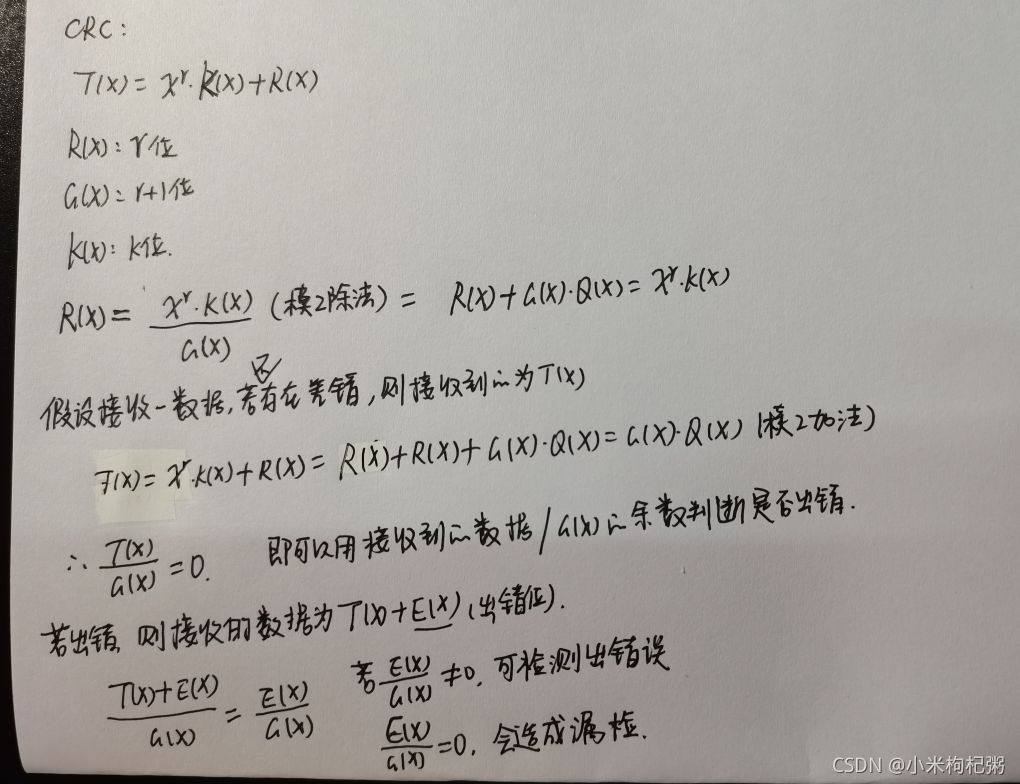 CRC:
T(X) = X^r·K(X)+R(X)
R(X): r位
G(X): r+1位
K(X): K位.
R(X) = X^r·K(X) / G(X) (模2除法) = R(X)+G(X)·Q(X) = X^r·K(X)
假设接收一数据,若不存在差错,则接收到的为T(X)
T(X) = X^r·K(X)+R(X) = R(X)+R(X)+G(X)·Q(X) = G(X)·Q(X) (模2加法)
∴ T(X)/G(X) = 0. 即可以用接收到的数据/G(X)的余数判断是否出错.
若出错,则接收的数据为T(X)+E(X)(出错位).
T(X)+E(X) / G(X) = E(X)/G(X) 若 E(X)/G(X) ≠0, 可检测出错误
E(X)/G(X) =0, 会造成漏检.
CSDN @小米枸杞粥